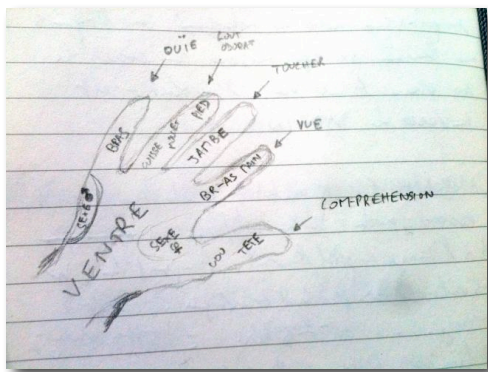 OUÏE
GOUT
ODORAT
TOUCHER
VUE
COMPREHENSION
BRAS
CUISSE MOLLET PIED
JAMBE
BR-AS MAIN
SEXE ♂
VENTRE
SEXE
♀
COU TETE